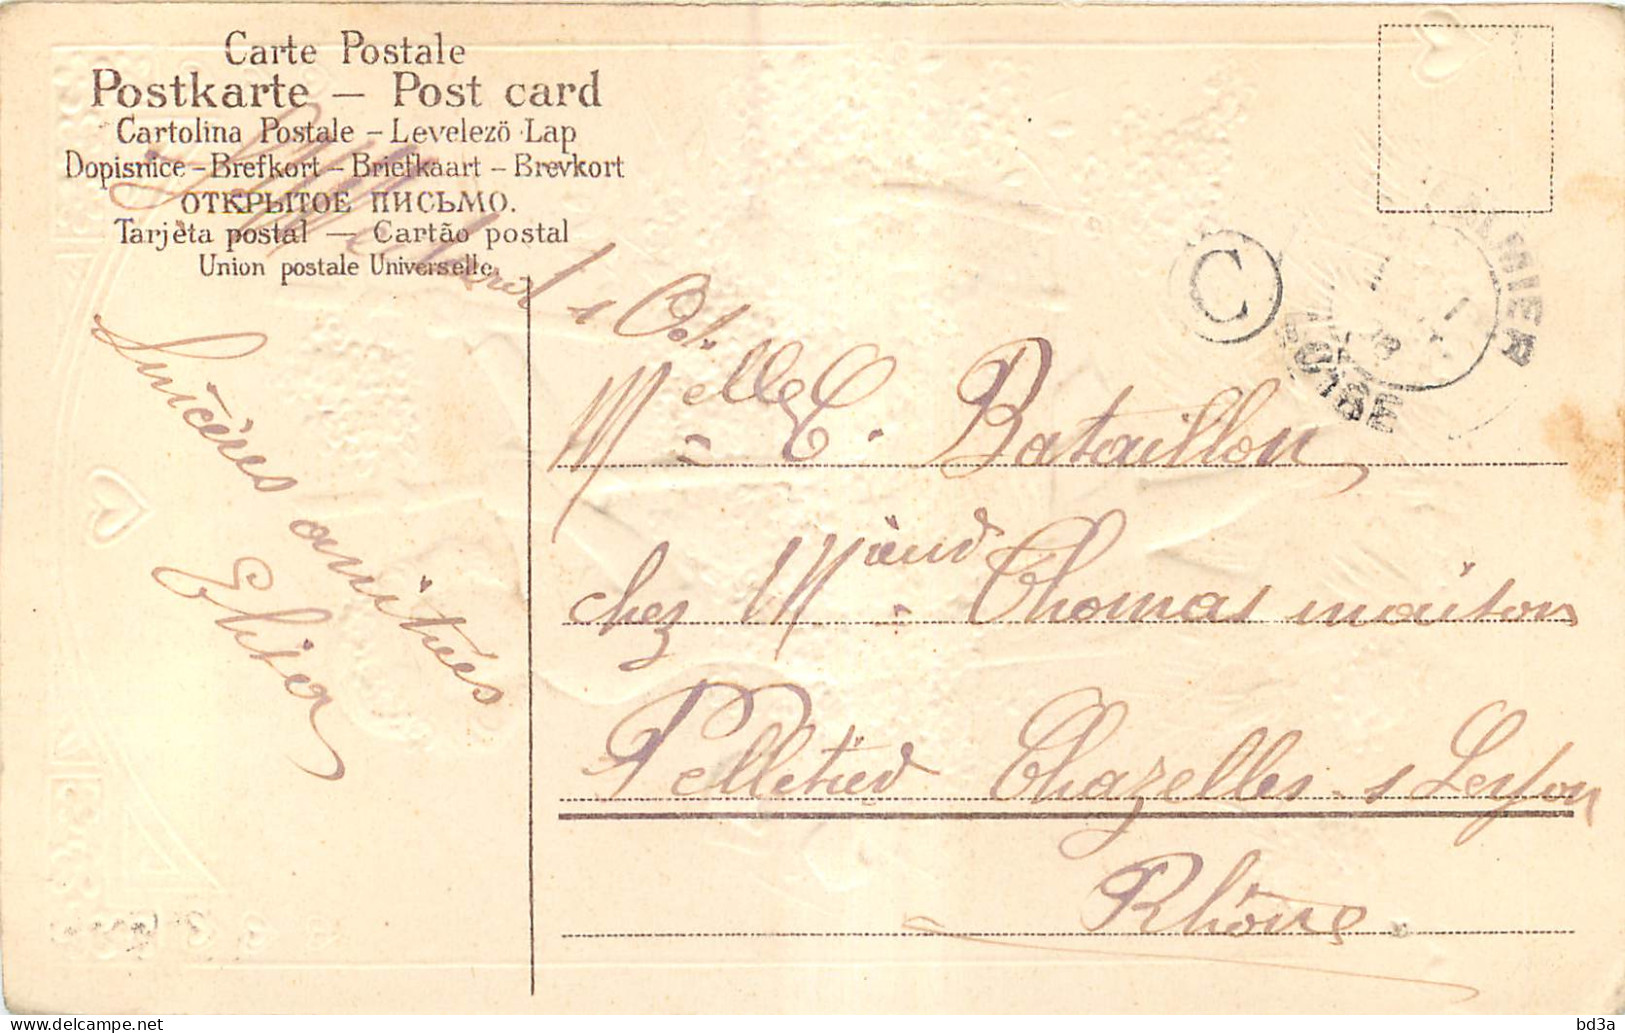 Carte Postale
Postkarte — Post card
Cartolina Postale – Levelezö Lap
Dopisnice – Brefkort – Briefkaart – Brevkort
ОТКРЫТОЕ ПИСЬМО.
Tarjèta postal — Cartão postal
Union postale Universelle.
1 Oct.
Sincères amitiés
C
Melle C. Bataillon
chez M Thomas maison
Pelletier Chazelles s Lyon
Rhône
bd3a